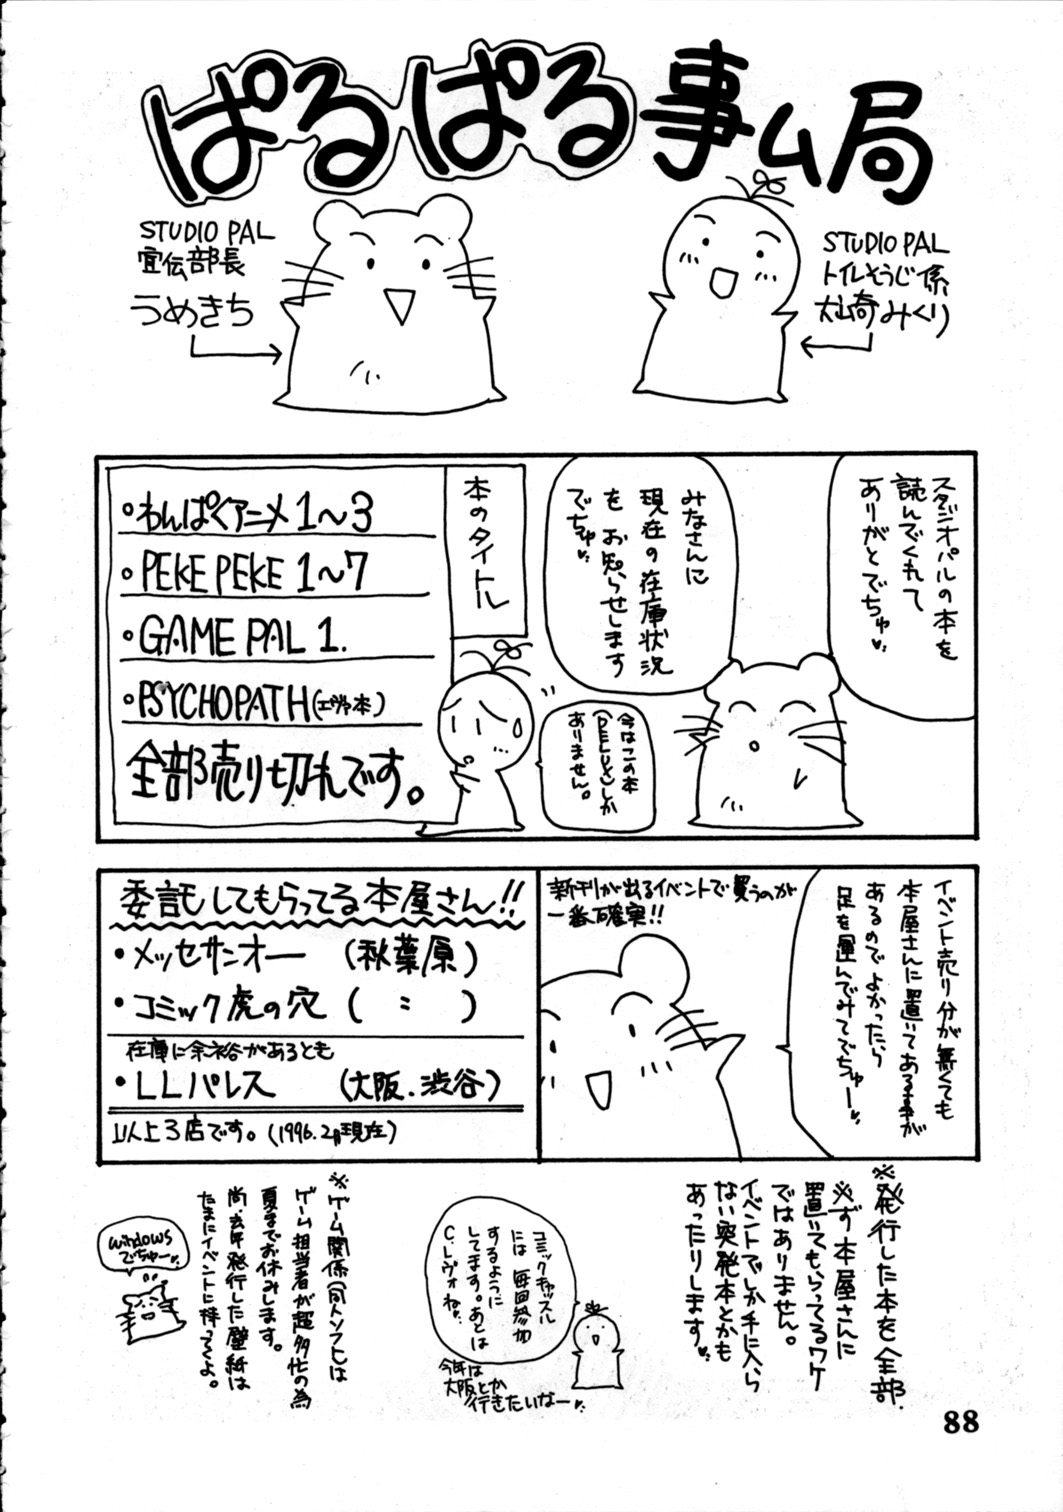 ぱるぱる事ム局
STUDIO PAL
宣伝部長
うめきち
STUDIO PAL
トイレそうじ係
大山奇みくり
スタジオパルの本を
読んでくれて
ありがとでちゅ
みなさんに
現在の在庫状況
を お知らせします
でちゅ
本のタイトル
・わんぱくアニメ1〜3
・PEKE PEKE 1〜7
・GAME PAL 1.
・PSYCHOPATH(エヴァ本)
全部売り切れです。
今はこの本
しか
ありません。
イベント売り分が無くても
本屋さんに置いてある事が
あるのでよかったら
足を運んでみてでちゅー
新刊が出るイベントで買うのが
一番確実!!
委託してもらってる本屋さん!!
・メッセサンオー (秋葉原)
・コミック虎の穴 ( 〃 )
在庫に余裕があるとも
・LLパレス (大阪.渋谷)
以上3店です。(1996.2月現在)
※発行した本を全部
※ず本屋さんに
置いてもらってるワケ
ではありません。
イベントでしか手に入ら
ない突発本とかも
あったりします
コミックキャッスル
には毎回参加
するように
してます。あとは
C.レヴォね。
今年は
大阪とか
行きたいなー
※ゲーム関係(同人ソフト)は
ゲーム担当者が超多忙の為
夏までお休みします。
尚、去年発行した壁紙は
たまにイベントに持ってくよ。
windows
でちゅー
88